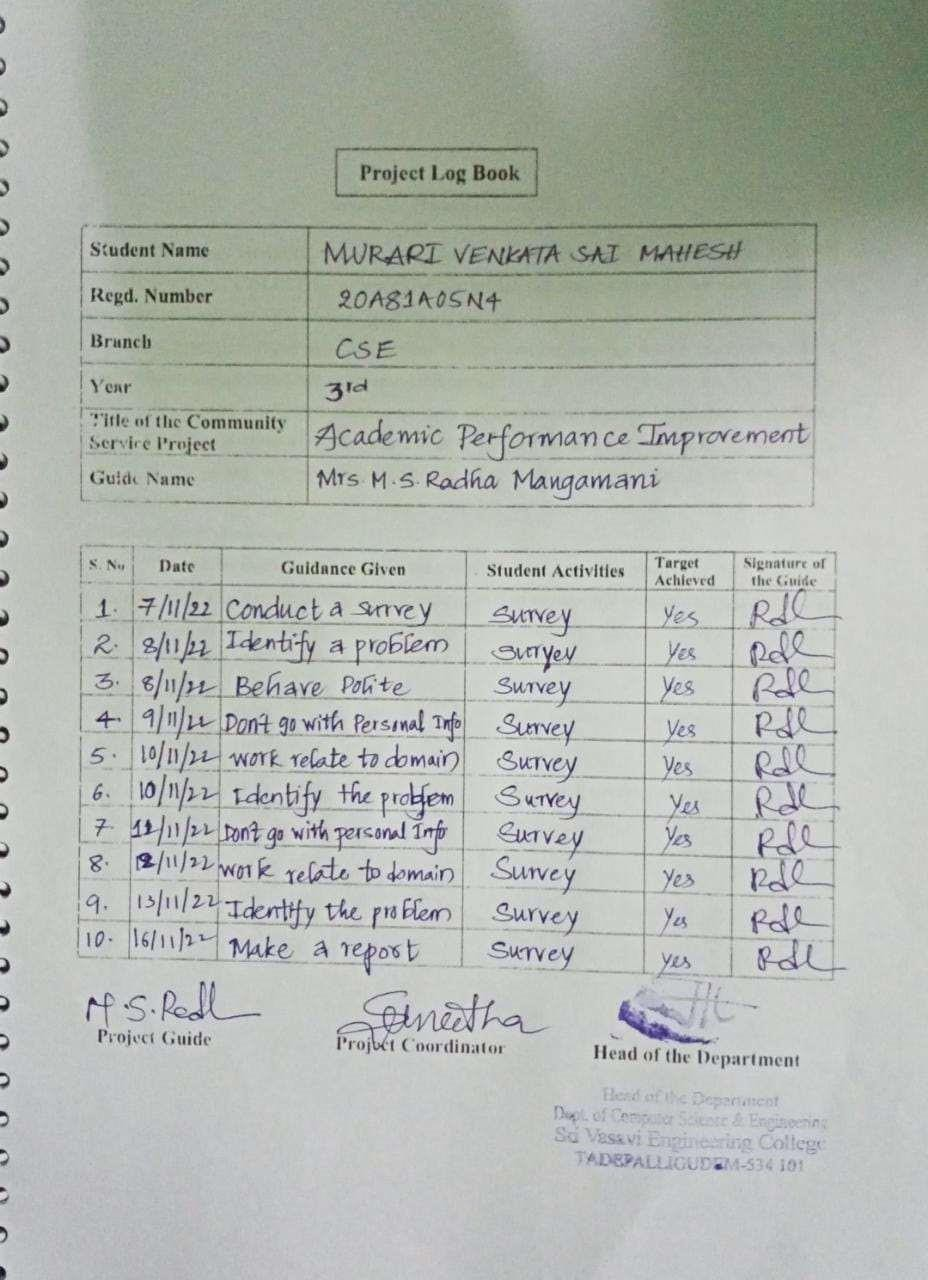 Project Log Book
Student Name MURARI VENKATA SAI MAHESH
Regd. Number 20A81A05N4
Branch CSE
Year 3rd
Title of the Community
Service Project Academic Performance Improvement
Guide Name Mrs. M.S. Radha Mangamani
S. No Date Guidance Given Student Activities Target Achieved Signature of the Guide
1. 7/11/22 Conduct a survey Survey Yes
2. 8/11/22 Identify a problem survyev Yes
3. 8/11/22 Behave Polite Survey Yes
4. 9/11/22 Don't go with Personal Info Survey Yes
5. 10/11/22 work relate to domain Survey Yes
6. 10/11/22 Identify the problem Survey Yes
7. /11/22 Don't go with personal Info Survey Yes
8. 12/11/22 work relate to domain Survey Yes
9. 13/11/22 Identify the problem Survey Yes
10. 16/11/22 Make a report Survey yes
M.S. Radl Suneetha
Project Guide Project Coordinator Head of the Department
Head of the Department
Dept. of Computer Science & Engineering
Sri Vasavi Engineering College
TADEPALLIGUDEM-534 101